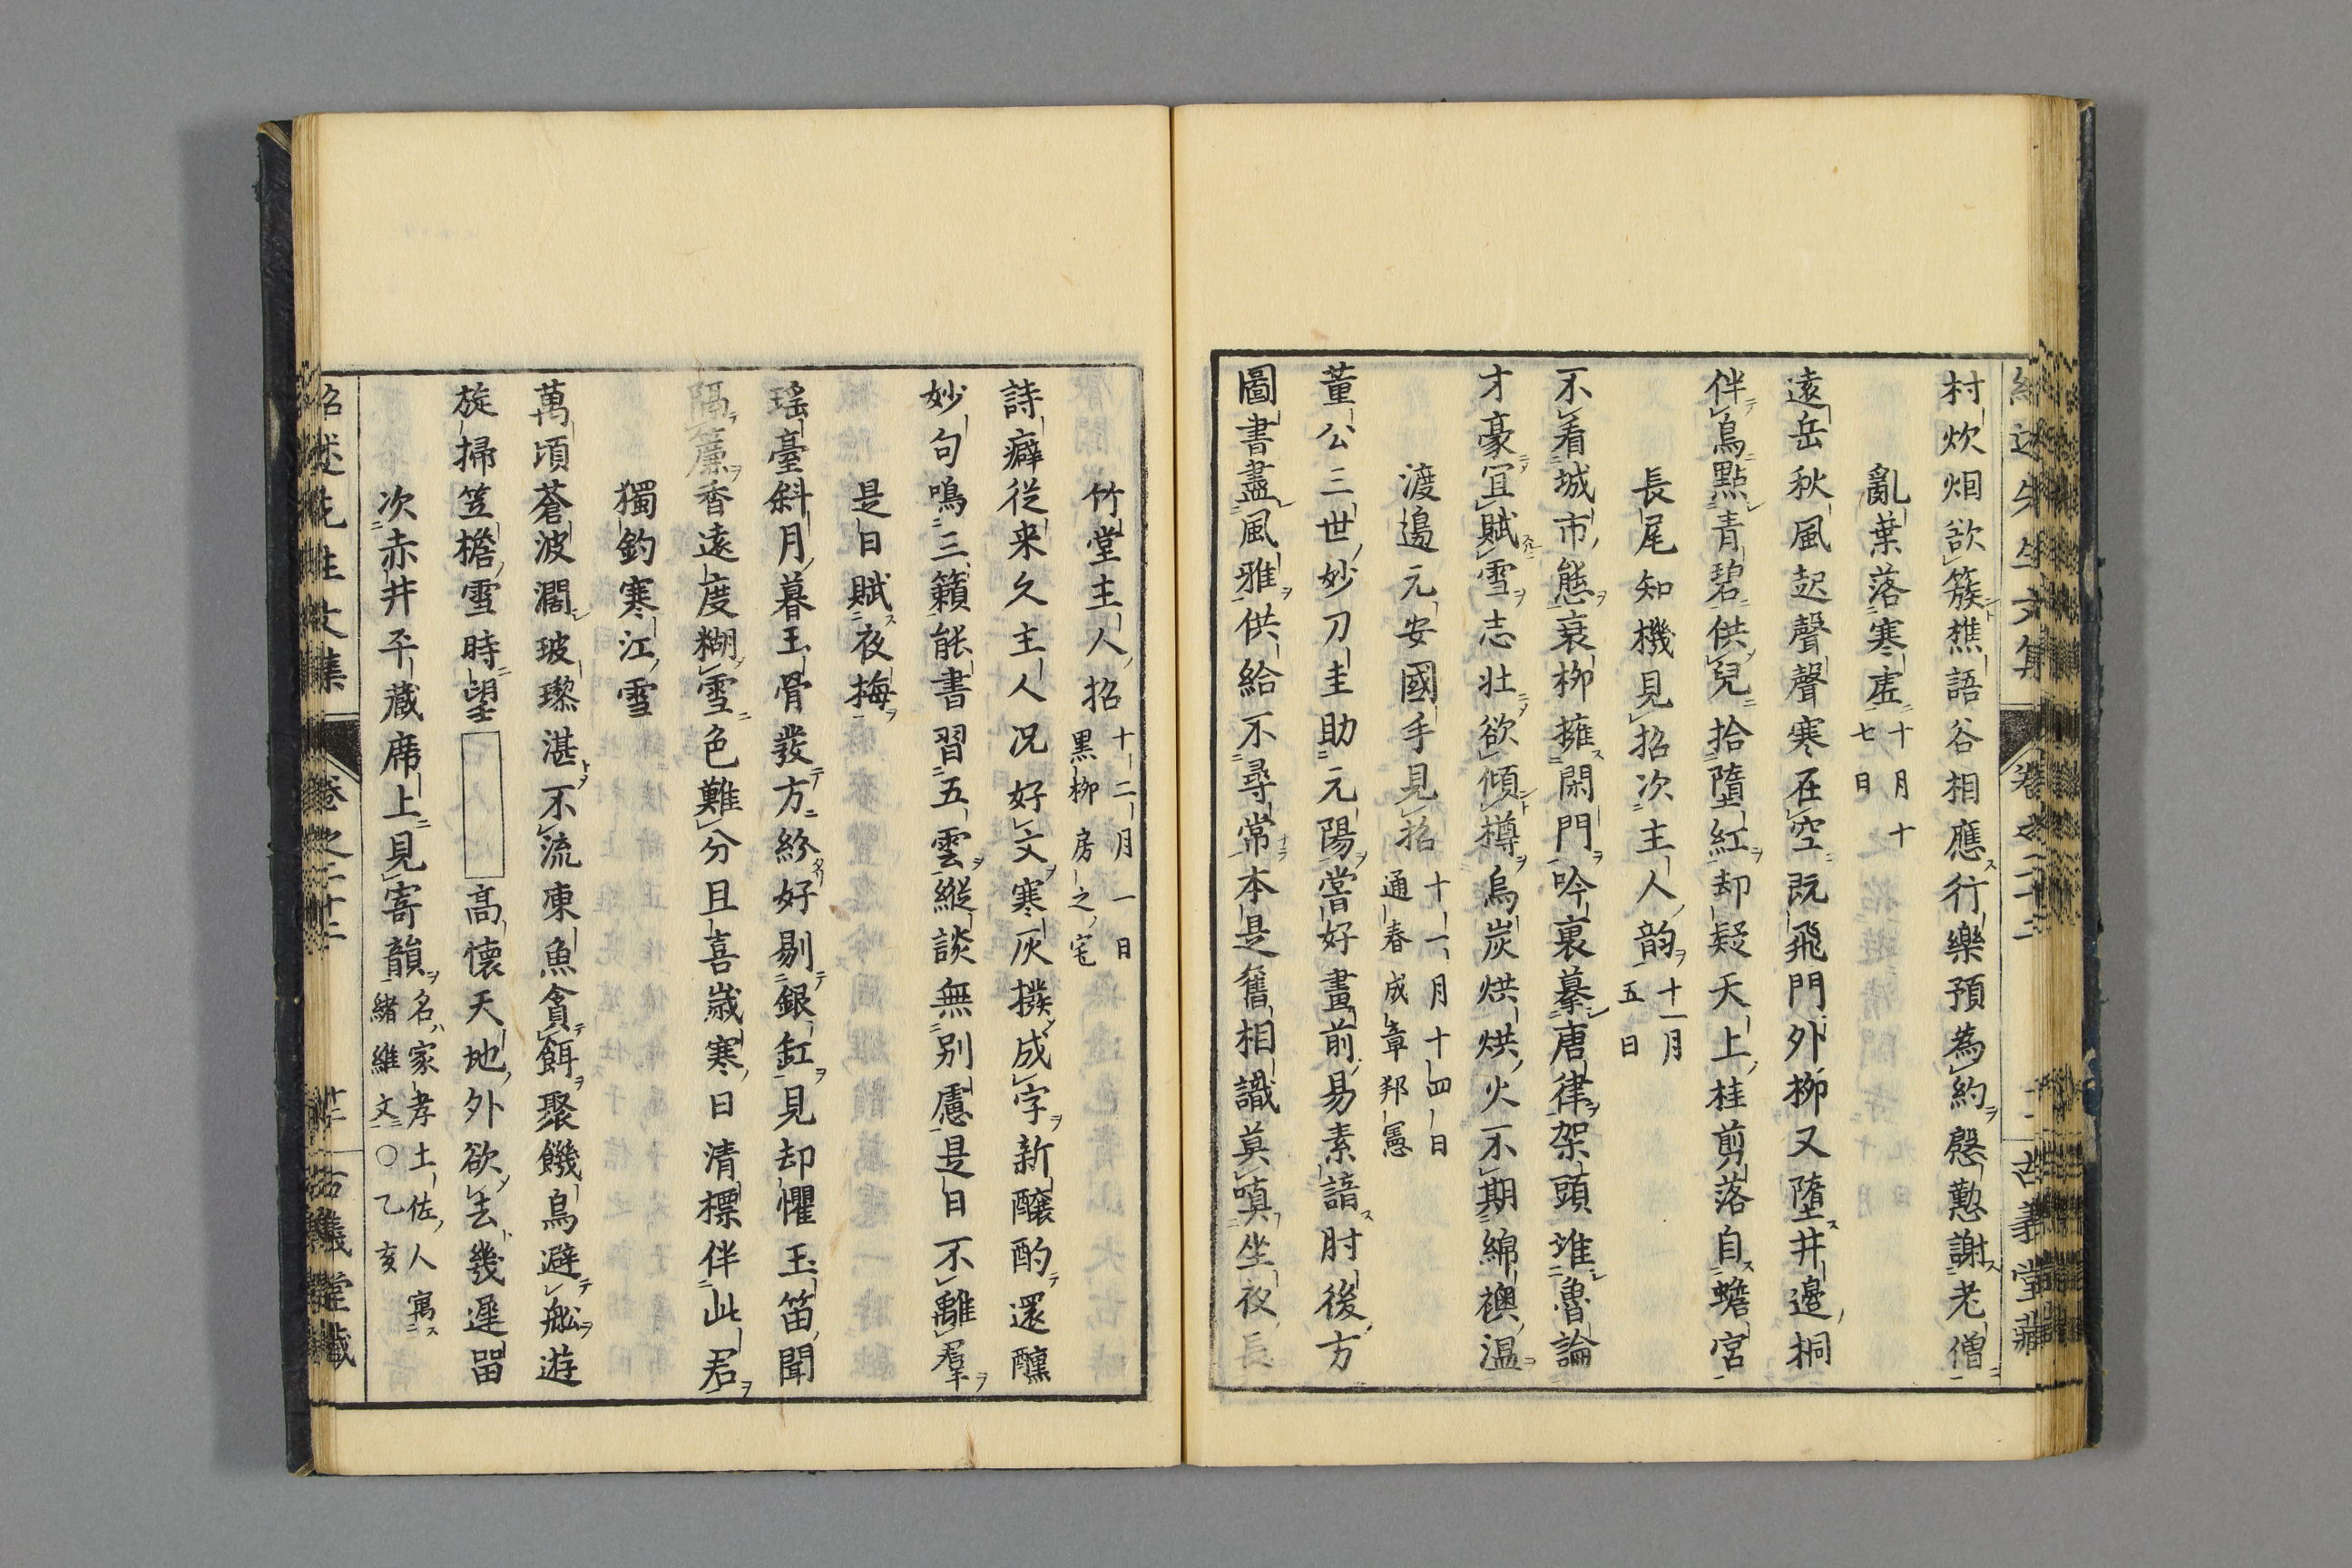 紹述先生文集 卷之二十二 古義堂藏
村炊烟欲簇樵語谷相應行樂預為約慇懃謝老僧
亂葉落寒虛 十月十七日
遠岳秋風起聲聲寒在空既飛門外栁又墮井邉桐
伴鳥點青碧供兒拾墮紅却疑天上桂剪落自蟾宮
長尾知機見招次主人韵 十一月五日
不看城市態衰栁擁閑門吟裏摹唐律架頭堆魯論
才豪冝賦雪志壮欲傾樽烏炭烘烘火不期綿襖温
渡邉元安國手見招 十一月十四日通春成章邦憲
董公三世妙刀圭助元陽嘗好畫前易素諳肘後方
圖書盡風雅供給不尋常本是舊相識莫嗔坐夜長
竹堂主人招 十二月一日黒栁房之宅
詩癖従来久主人况好文寒灰撥成字新釀酌還醺
妙句鳴三籟能書習五雲縱談無別慮是日不離羣
是日賦夜梅
瑤臺斜月暮玉骨發方紛好剔銀缸見却懼玉笛聞
隔簾香遠度糊雪色難分且喜嵗寒日清標伴此君
獨釣寒江雪
萬頃蒼波濶玻瓈湛不流凍魚貪餌聚饑鳥避舩遊
旋掃笠檐雪時望 高懐天地外欲去幾遲留
次赤井平藏席上見寄韻 名家孝土佐人寓緒維文○乙亥
紹述先生文集 卷之二十二 廿二 古義堂藏